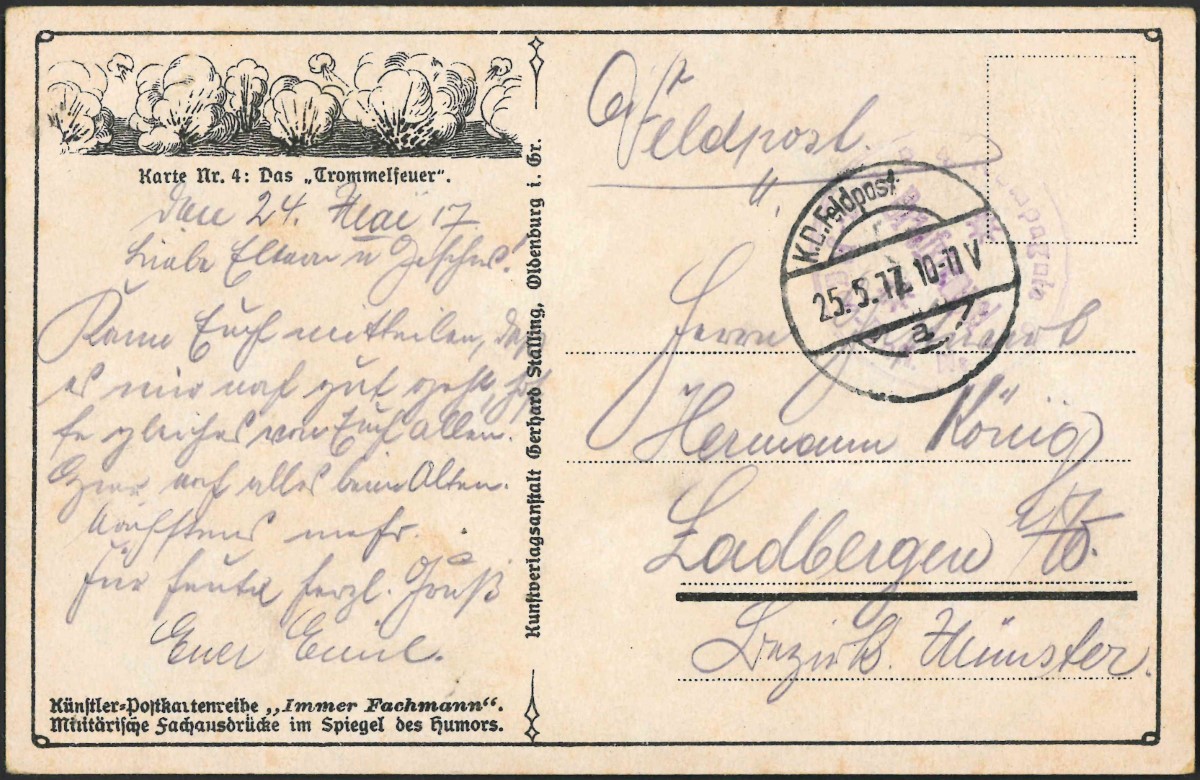 Karte Nr. 4: Das „Trommelfeuer“.
Den 24. Mai 17
Liebe Eltern u Geschw.
Kann Euch mitteilen, daß
es mir noch gut geht, hof
fe gleiches von Euch allen.
Hier noch alles beim Alten.
Nächstens mehr.
Für heute herzl. Gruß
Euer Emil.
Künstler-Postkartenreihe „Immer Fachmann“.
Militärische Fachausdrücke im Spiegel des Humors.
Kunstverlagsanstalt Gerhard Stalling, Oldenburg i. Gr.
Feldpost.
K.D.Feldpost
25.5.17. 10-11 V
a
Herrn
Hermann König
Ladbergen i/W.
Bezirk Münster.